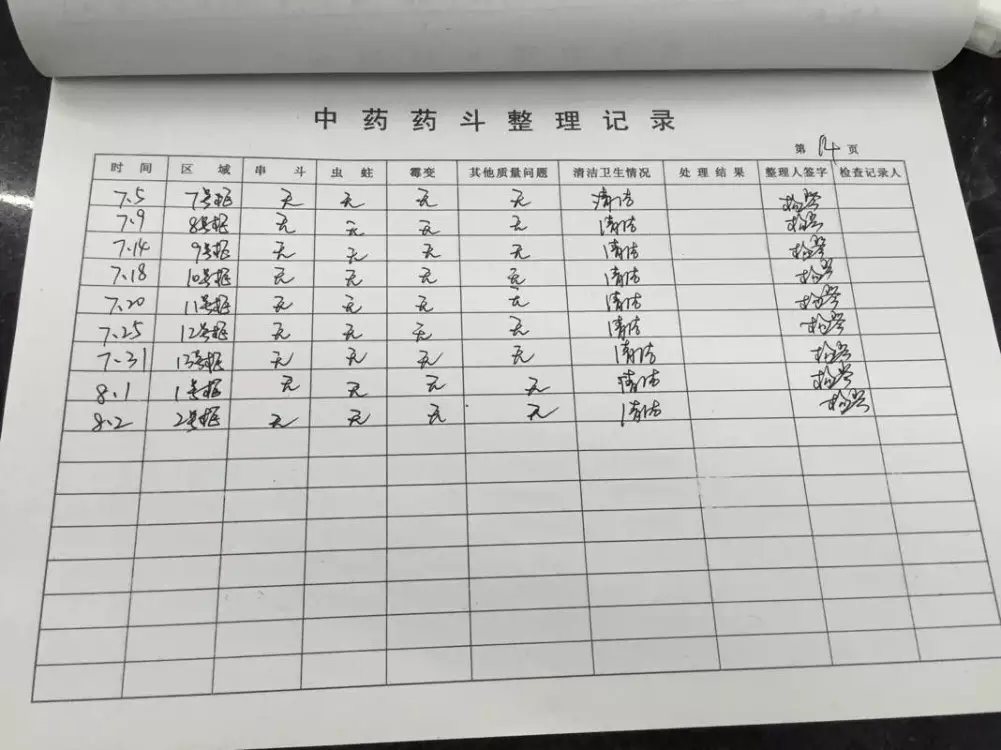 中药药斗整理记录
第 14 页
时间 区域 串斗 虫蛀 霉变 其他质量问题 清洁卫生情况 处理结果 整理人签字 检查记录人
7.5 7号柜 无 无 无 无 清洁
7.9 8号柜 无 无 无 无 清洁
7.14 9号柜 无 无 无 无 清洁
7.18 10号柜 无 无 无 无 清洁
7.20 11号柜 无 无 无 无 清洁
7.25 12号柜 无 无 无 无 清洁
7.31 13号柜 无 无 无 无 清洁
8.1 1号柜 无 无 无 无 清洁
8.2 2号柜 无 无 无 无 清洁